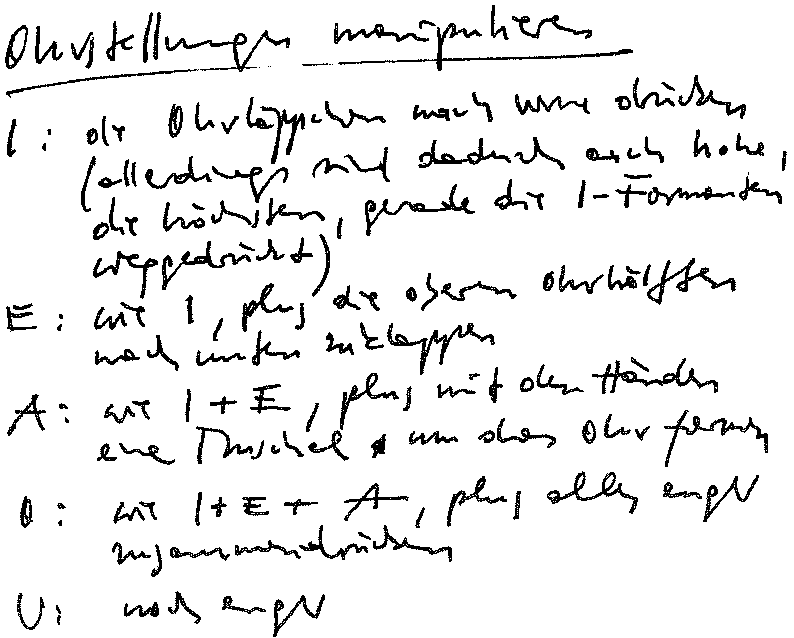 Ohrstellungen manipulieren
I: die Ohrläppchen nach vorne drücken
(allerdings sind dadurch auch hohe,
die höchsten, gerade die I-Formanten
weggedrückt)
E: wie I, plus die oberen Ohrhälften
nach unten zuklappen
A: wie I + E, plus mit den Händen
eine Muschel um das Ohr formen
O: wie I + E + A, plus alles enger
zusammendrücken
U: noch enger